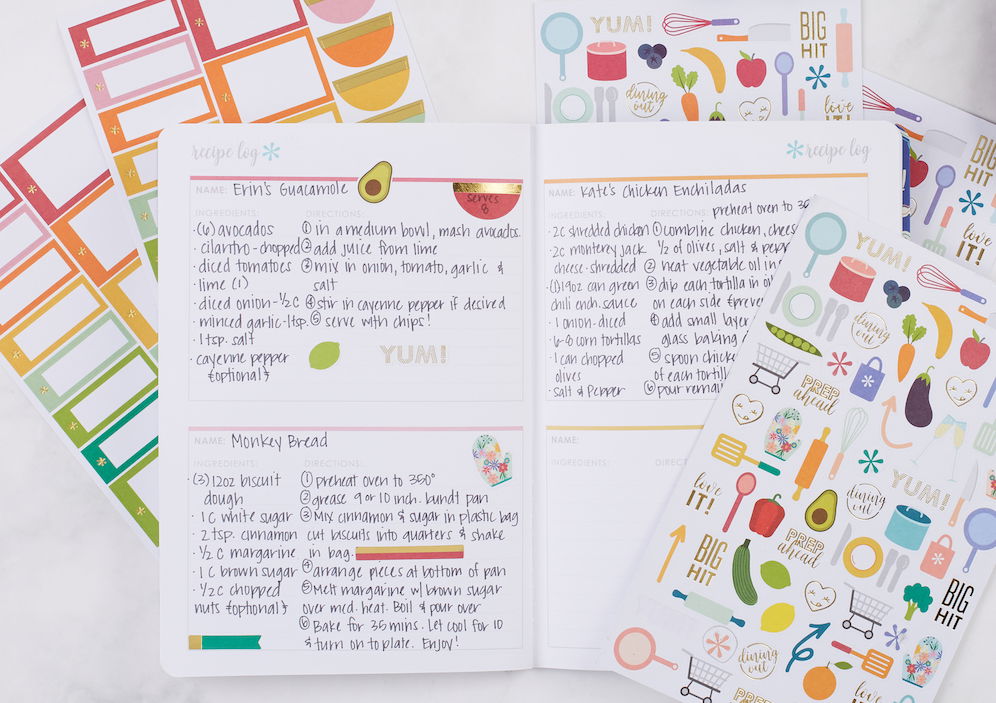 YUM!
BIG
HIT
dining
out
love
IT!
BIG
HIT
love
IT!
recipe log
NAME: Erin's Guacamole
serves
8
INGREDIENTS: DIRECTIONS:
· (6) avocados ① in a medium bowl, mash avocados.
· cilantro - chopped ② add juice from lime
· diced tomatoes ③ mix in onion, tomato, garlic &
· lime (1) salt
· diced onion - ½ C ④ stir in cayenne pepper if desired
· minced garlic - 1tsp. ⑤ serve with chips!
· 1 tsp. salt
· cayenne pepper YUM!
{optional}
NAME: Monkey Bread
INGREDIENTS: DIRECTIONS:
· (3) 12oz biscuit ① preheat oven to 350°
dough ② grease 9 or 10 inch. bundt pan
· 1 C white sugar ③ Mix cinnamon & sugar in plastic bag
· 2 tsp. cinnamon cut biscuits into quarters & shake
· ½ C margarine in bag.
· 1 C brown sugar ④ arrange pieces at bottom of pan
· ½ C chopped ⑤ Melt margarine w/ brown sugar
nuts {optional} over med. heat. Boil & pour over
⑥ Bake for 35 mins. Let cool for 10
& turn on to plate. Enjoy!
recipe log
NAME: Kate's Chicken Enchiladas
INGREDIENTS: DIRECTIONS: preheat oven to
· 2c shredded chicken ① combine chicken,
· 2c monterey jack ½ of olives, salt &
cheese · shredded ② heat vegetable oil in
· (1) 19oz can green ③ dip each tortilla in
chili ench. sauce on each side
· 1 onion - diced ④ add small layer
· 6-8 corn tortillas glass baking
· 1 can chopped ⑤ spoon
olives of each
· salt & Pepper ⑥ pour
NAME:
INGREDIENTS:
YUM!
dining
out
PREP
ahead
love
IT!
YUM!
dining
out
PREP
ahead
BIG
HIT
BIG
HIT
dining
out
love
PREP